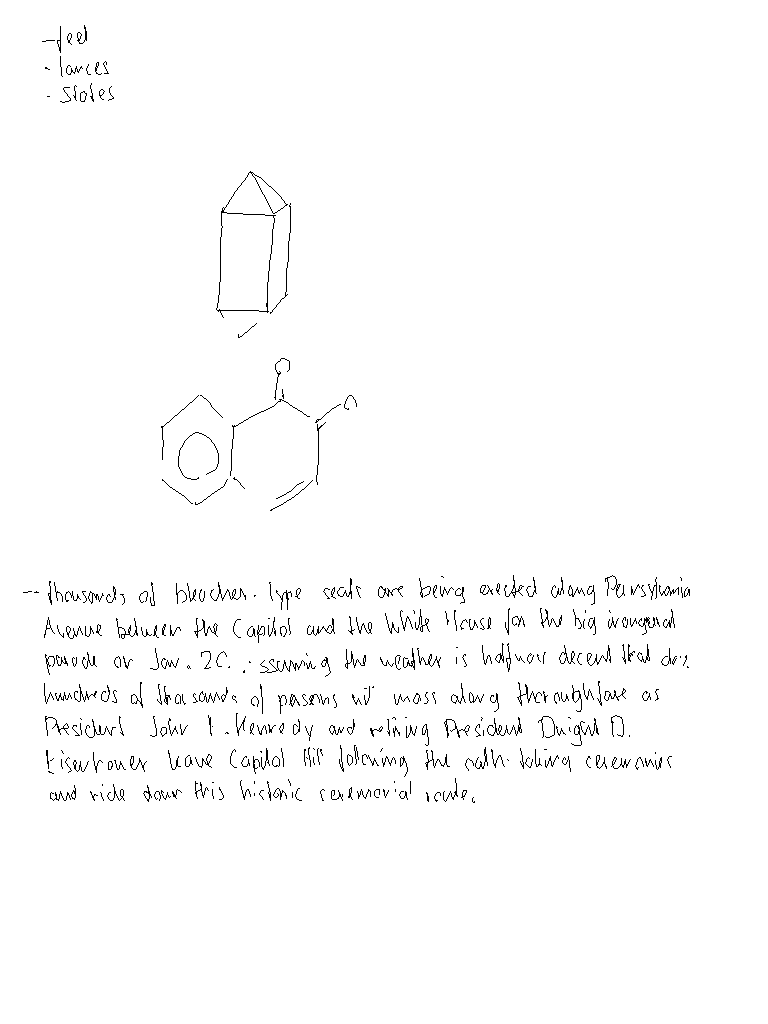 - feel
- lances
- States
O
O
-- thousands of bleacher-type seats are being erected along Pennsylvania
Avenue between the Capitol and the White House for the big inaugural
parade on Jan. 20. Assuming the weather is halfway decent that day,
hundreds of thousands of persons will mass along thoroughfare as
President John F. Kennedy and retiring President Dwight D.
Eisenhower leave Capitol Hill following the oath-taking ceremonies
and ride down this historic ceremonial route.